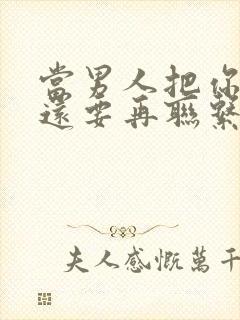 當男人把你
還要再聯繫
夫人感慨萬千